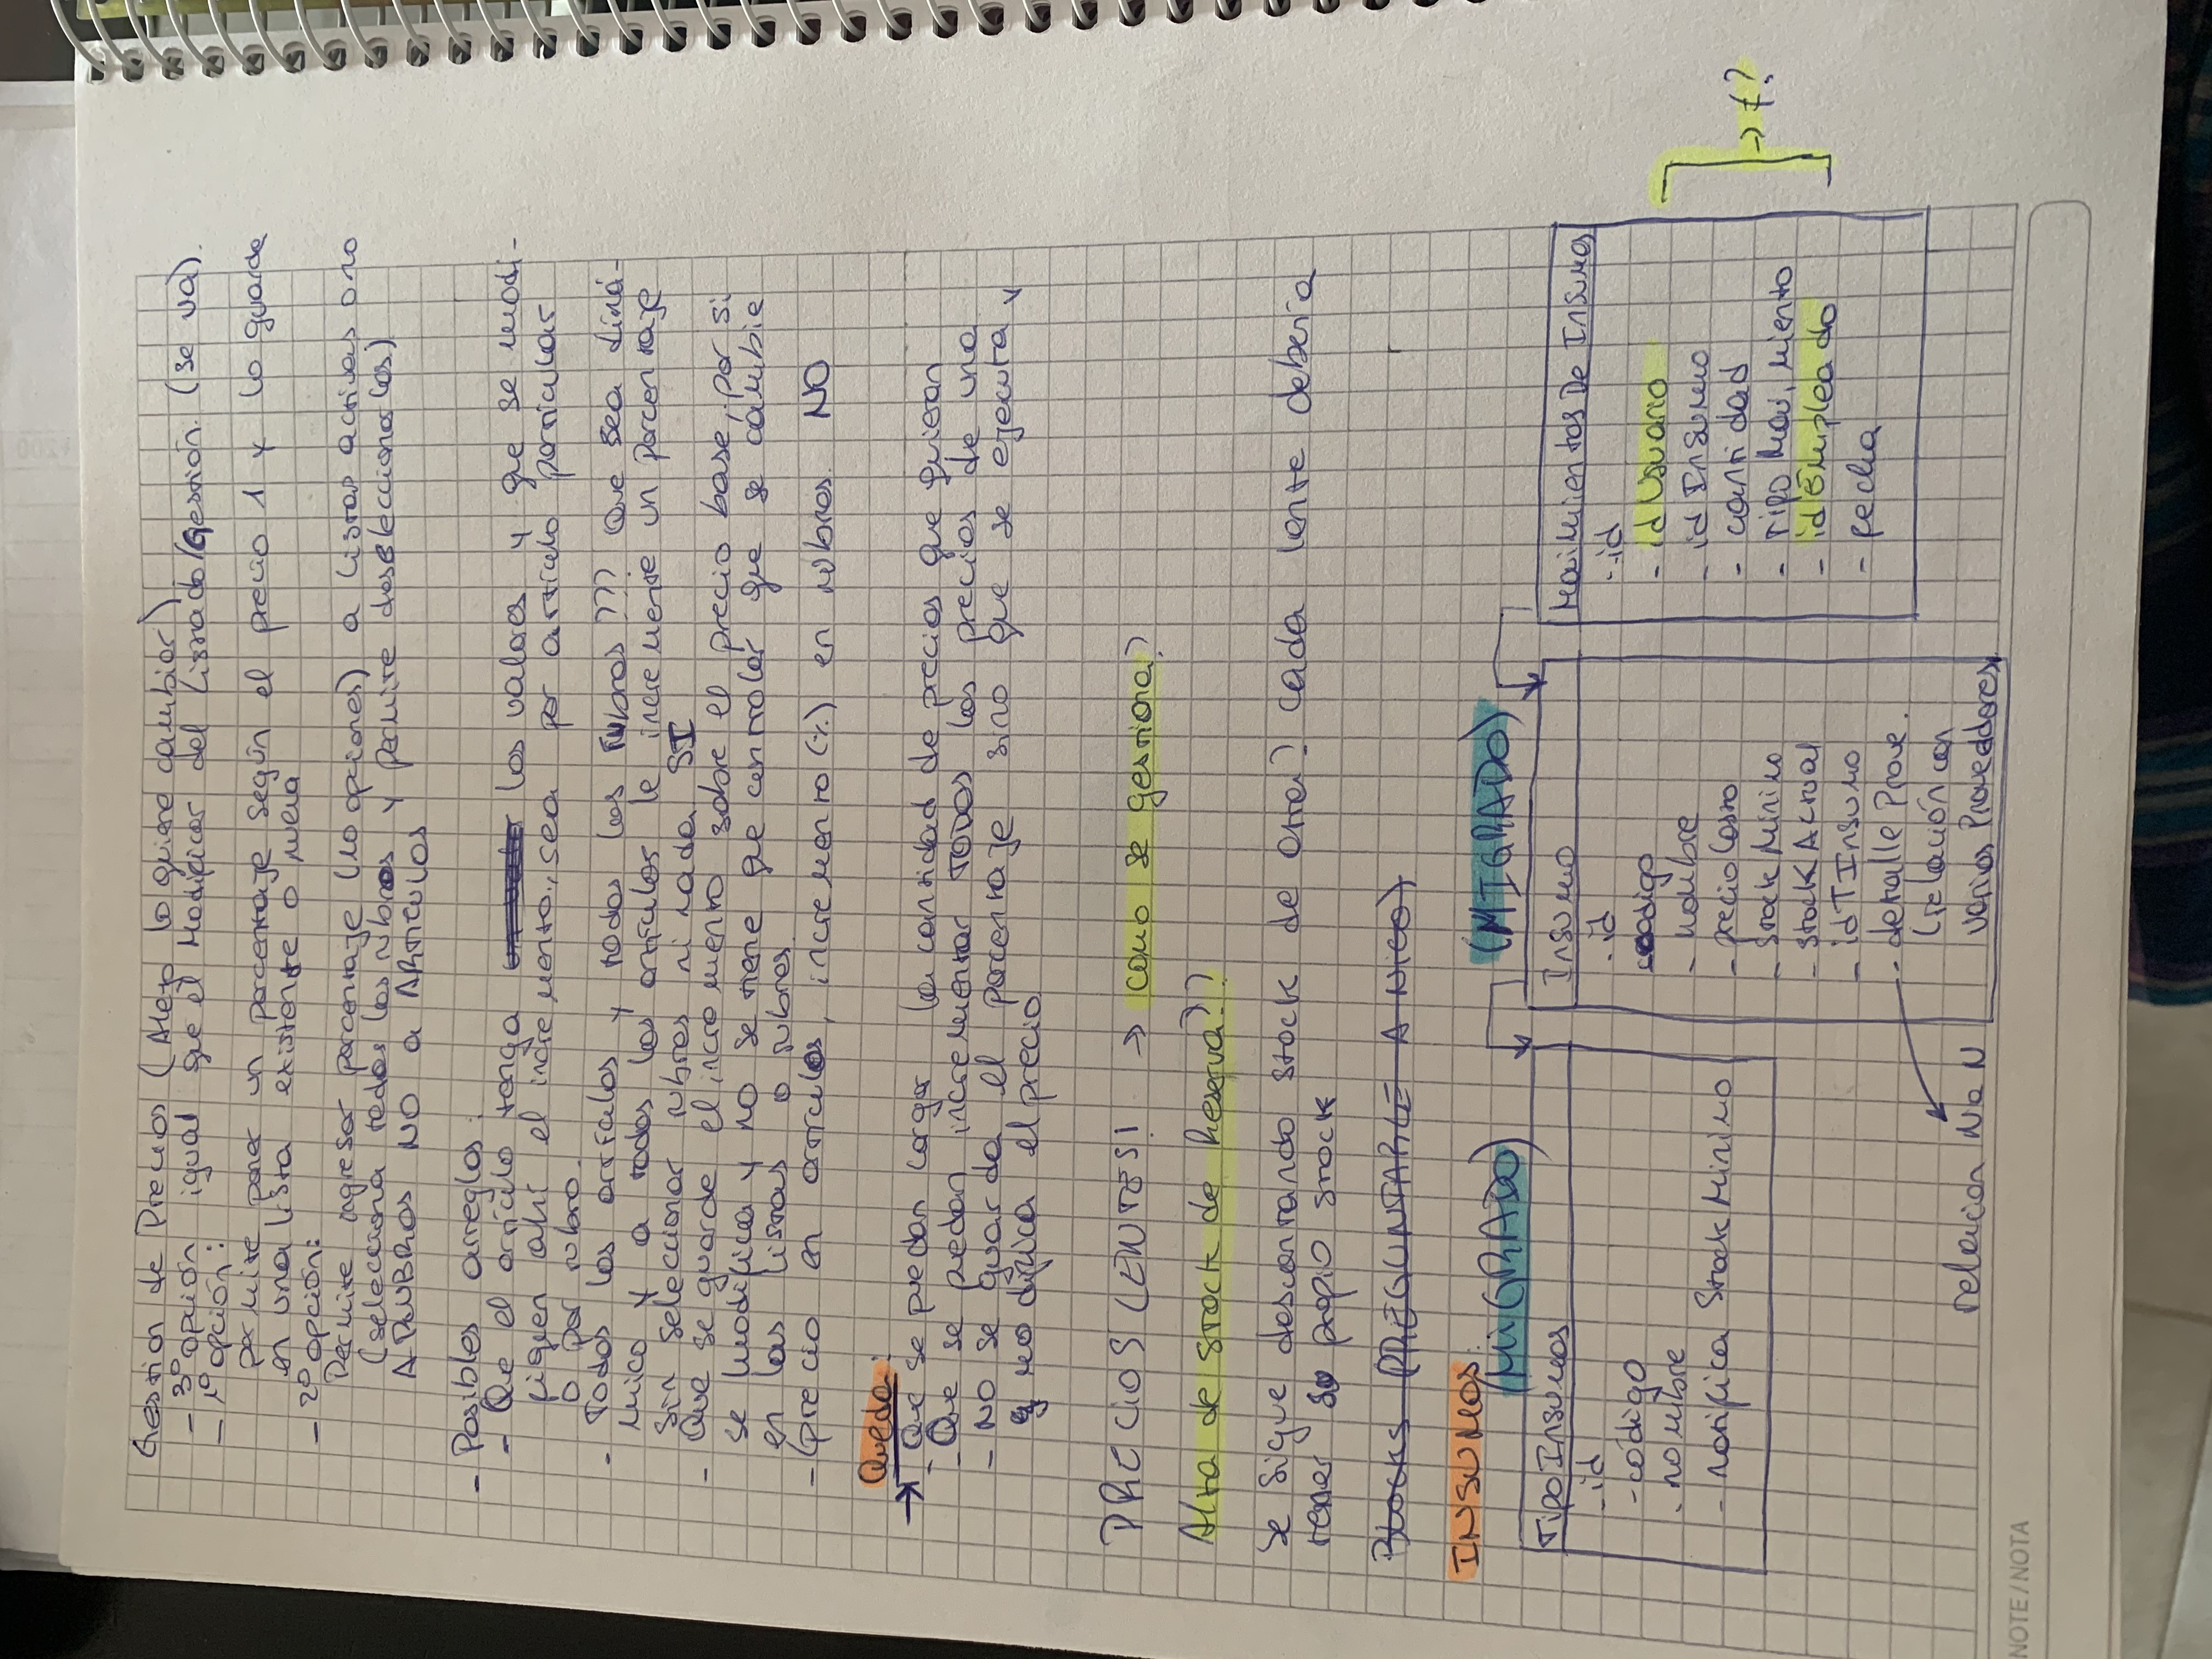 Gestion de Precios (Alejo lo quiere cambiar)
- 3º opción igual que el Modificar del Listado/Gestión. (se va).
- 1º opción:
permite poner un porcentaje según el precio 1 y lo guarda
en una lista existente o nueva
- 2º opción:
Permite ingresar porcentaje (no opciones) a listas activas o no
(selecciona todos los rubros y permite desseleccionarlos)
A RUBROS NO a ARTICULOS
- Posibles arreglos:
- Que el artículo tenga los valores y que se modi-
fiquen ahí el incremento, sea por artículo particular
o por rubro.
- Todos los artículos y todos los rubros??? Que sea diná-
mico y a todos los artículos le incremente un porcentaje
sin seleccionar rubros ni nada SI
- Que se guarde el incremento sobre el precio base, por si
se modifica y no se tiene que controlar que se cambie
en las listas o rubros.
- (precio en artículos, incremento (%) en rubros. NO
Queda:
→ Que se puedan cargar la cantidad de precios que quieran
- Que se puedan incrementar TODOS los precios de una
- NO se guarda el porcentaje sino que se ejecuta y
y modifica el precio
PRECIOS LENTES! → como se gestiona?
Alta de stock de Reserva??
Se sigue descontando stock de otra? Cada lente debería
tener su propio stock
Blocks (PREGUNTARLE A Nico)
INSUMOS:
(MIGRADO) (MIGRADO)
Tipo Insumos
- id
- código
- nombre
- notifica Stock Minimo
Insumo
- id
codigo
- nombre
- precio Costo
- stock Minimo
- stock Actual
- idTInsumo
- detalle Prove.
(relación con
varios Proveedores)
relacion N a N
Movimientos De Insumos
- id
- id Usuario
- id Insumo
- cantidad
- Tipo Movimiento
- id Empleado
- fecha
→ ≠?
NOTE/NOTA